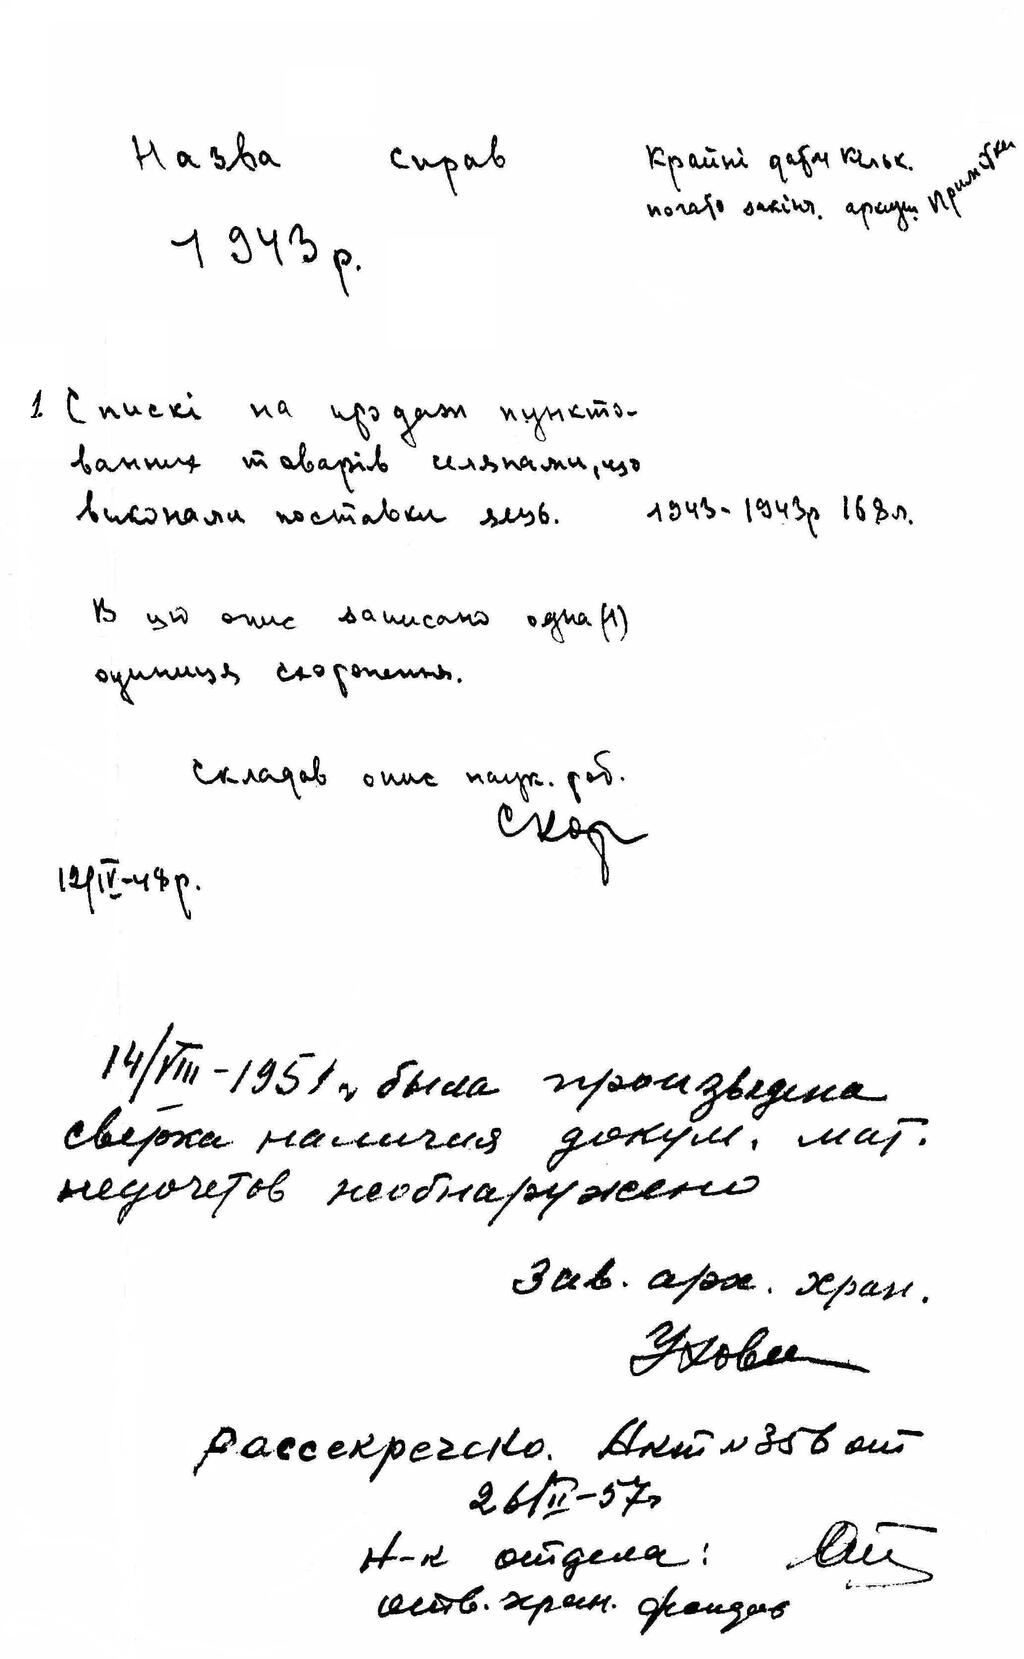 Назва справ
Крайні дати Кільк.
почато закінч. аркуш. Примітки
1943 р.
1. Спискі на продаж пункто-
ванних товарів селянами, що
виконали поставки яєць. 1943-1943р 168л.
В цю опис записано одна (1)
одиниця схоронення.
Складав опис наук. роб.
Скор
12/IV-48р.
14/VIII-1951 г. была произведена
сверка наличия докум. мат.
недочетов необнаружено
Зав. арх. хран.
Рассекречено. Акт N 356 от
26/II-57г
Н-к отдела:
оств. хран. фондов